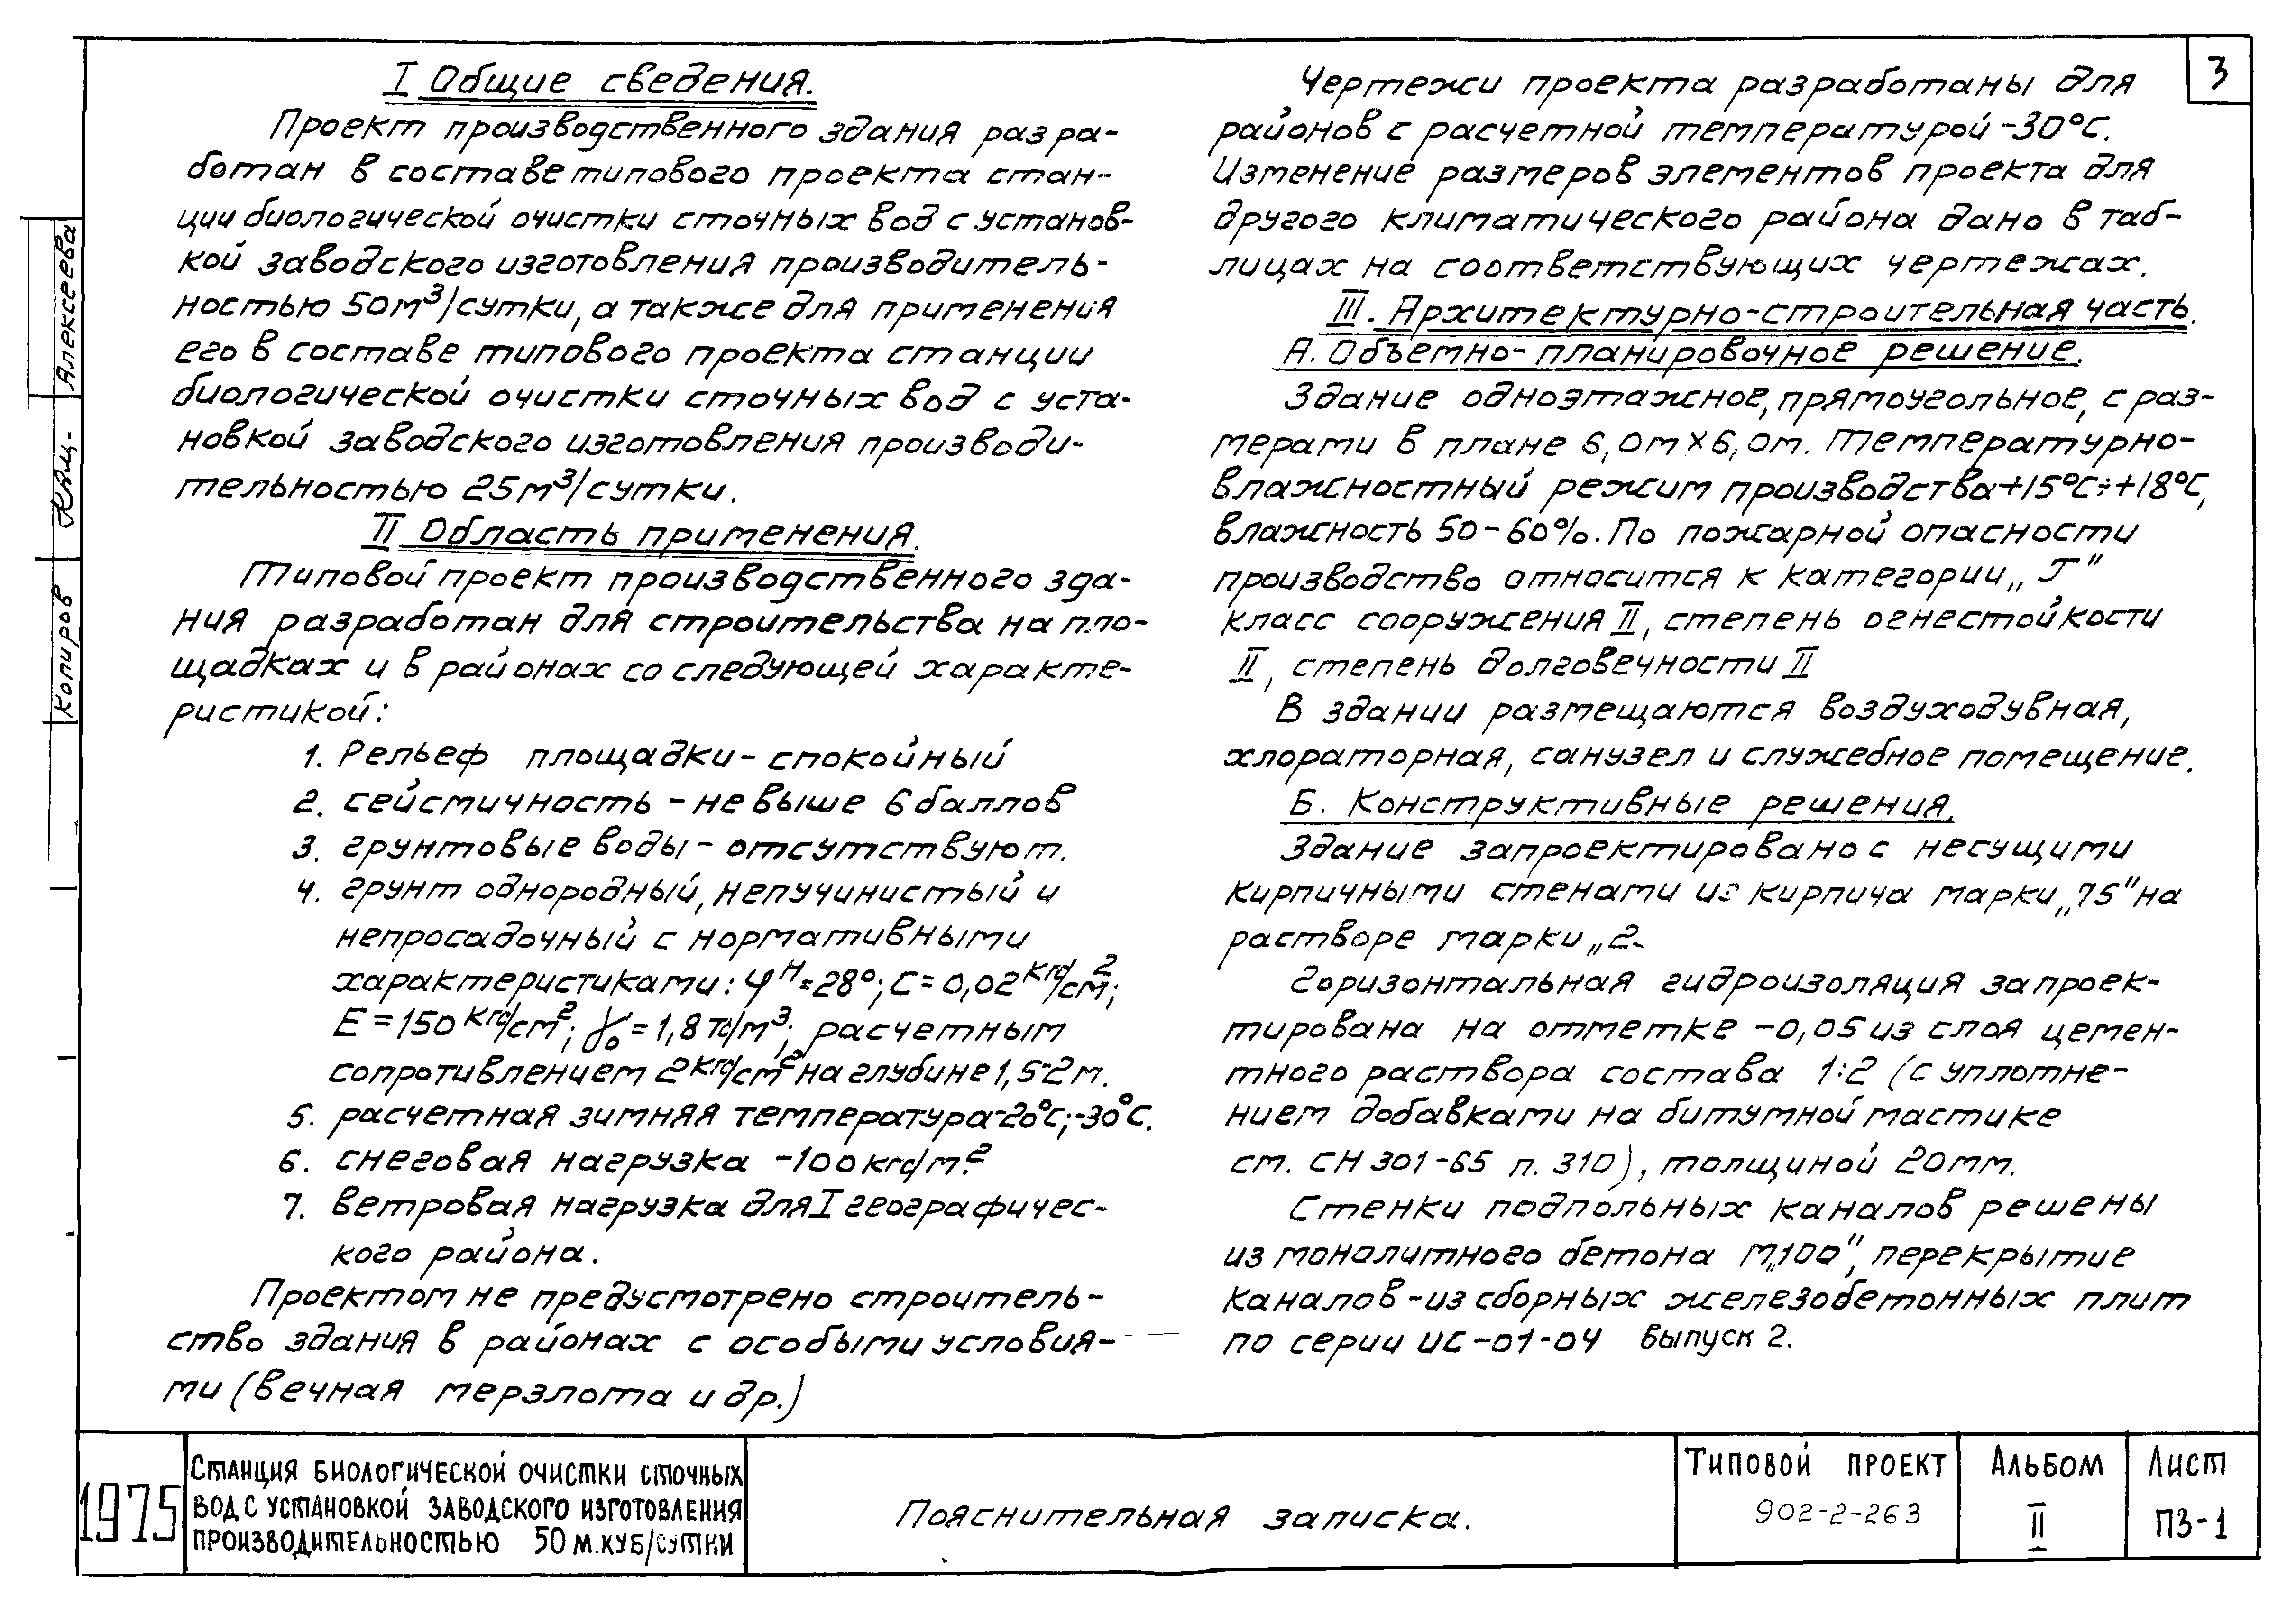 3
I Общие сведения.
Проект производственного здания разра-
ботан в составе типового проекта стан-
ции биологической очистки сточных вод с установ-
кой заводского изготовления производитель-
ностью 50м³/сутки, а также для применения
его в составе типового проекта станции
биологической очистки сточных вод с уста-
новкой заводского изготовления производи-
тельностью 25м³/сутки.
II Область применения.
Типовой проект производственного зда-
ния разработан для строительства на пло-
щадках и в районах со следующей характе-
ристикой:
1. Рельеф площадки - спокойный
2. сейсмичность - не выше 6 баллов
3. грунтовые воды - отсутствуют.
4. грунт однородный, непучинистый и
непросадочный с нормативными
характеристиками: φᴴ=28°; C=0,02 кгс/см²;
E=150 кгс/см²; γ₀=1,8 тс/м³; расчетным
сопротивлением 2 кгс/см² на глубине 1,5-2м.
5. расчетная зимняя температура -20°С; -30°С.
6. снеговая нагрузка -100 кгс/м²
7. ветровая нагрузка для I географичес-
кого района.
Проектом не предусмотрено строитель-
ство здания в районах с особыми условия-
ми (вечная мерзлота и др.)
Чертежи проекта разработаны для
районов с расчетной температурой -30°С.
Изменение размеров элементов проекта для
другого климатического района дано в таб-
лицах на соответствующих чертежах.
III. Архитектурно-строительная часть.
А. Объемно-планировочное решение.
Здание одноэтажное, прямоугольное, с раз-
мерами в плане 6,0м×6,0м. Температурно-
влажностный режим производства +15°С÷+18°С,
влажность 50-60%. По пожарной опасности
производство относится к категории „Г"
класс сооружения II, степень огнестойкости
II, степень долговечности II
В здании размещаются воздуходувная,
хлораторная, санузел и служебное помещение.
Б. Конструктивные решения.
Здание запроектировано с несущими
кирпичными стенами из кирпича марки „75" на
растворе марки „2
Горизонтальная гидроизоляция запроек-
тирована на отметке -0,05 из слоя цемен-
тного раствора состава 1:2 (с уплотне-
нием добавками на битумной мастике
см. СН 301-65 п. 310), толщиной 20мм.
Стенки подпольных каналов решены
из монолитного бетона М„100", перекрытие
каналов - из сборных железобетонных плит
по серии ИС-01-04 выпуск 2.
Алексеева
Копиров
1975
Станция биологической очистки сточных
вод с установкой заводского изготовления
производительностью 50 м.куб/сутки
Пояснительная записка.
Типовой проект
902-2-263
Альбом
II
Лист
ПЗ-1